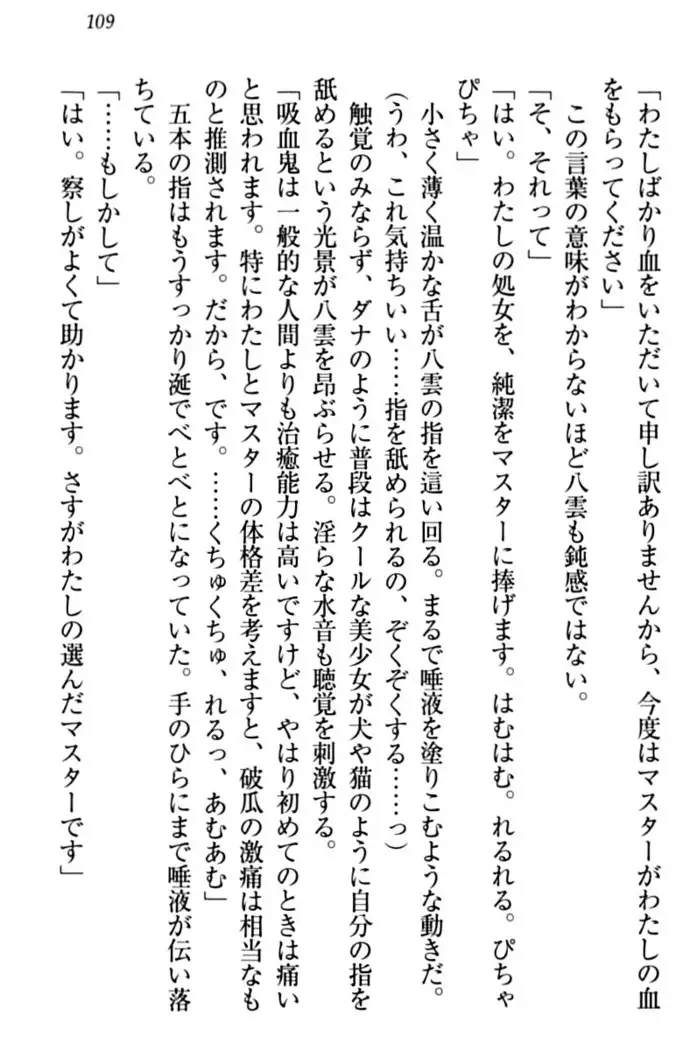 109
「わたしばかり血をいただいて申し訳ありませんから、今度はマスターがわたしの血
をもらってください」
この言葉の意味がわからないほど八雲も鈍感ではない。
「そ、それって」
「はい。わたしの処女を、純潔をマスターに捧げます。はむはむ。れるれる。ぴちゃ
ぴちゃ」
小さく薄く温かな舌が八雲の指を這い回る。まるで唾液を塗りこむような動きだ。
（うわ、これ気持ちいい……指を舐められるの、ぞくぞくする……っ）
触覚のみならず、ダナのように普段はクールな美少女が犬や猫のように自分の指を
舐めるという光景が八雲を昂ぶらせる。淫らな水音も聴覚を刺激する。
「吸血鬼は一般的な人間よりも治癒能力は高いですけど、やはり初めてのときは痛い
と思われます。特にわたしとマスターの体格差を考えますと、破瓜の激痛は相当なも
のと推測されます。だから、です。……くちゅくちゅ、れるっ、あむあむ」
五本の指はもうすっかり涎でべとべとになっていた。手のひらにまで唾液が伝い落
ちている。
「……もしかして」
「はい。察しがよくて助かります。さすがわたしの選んだマスターです」